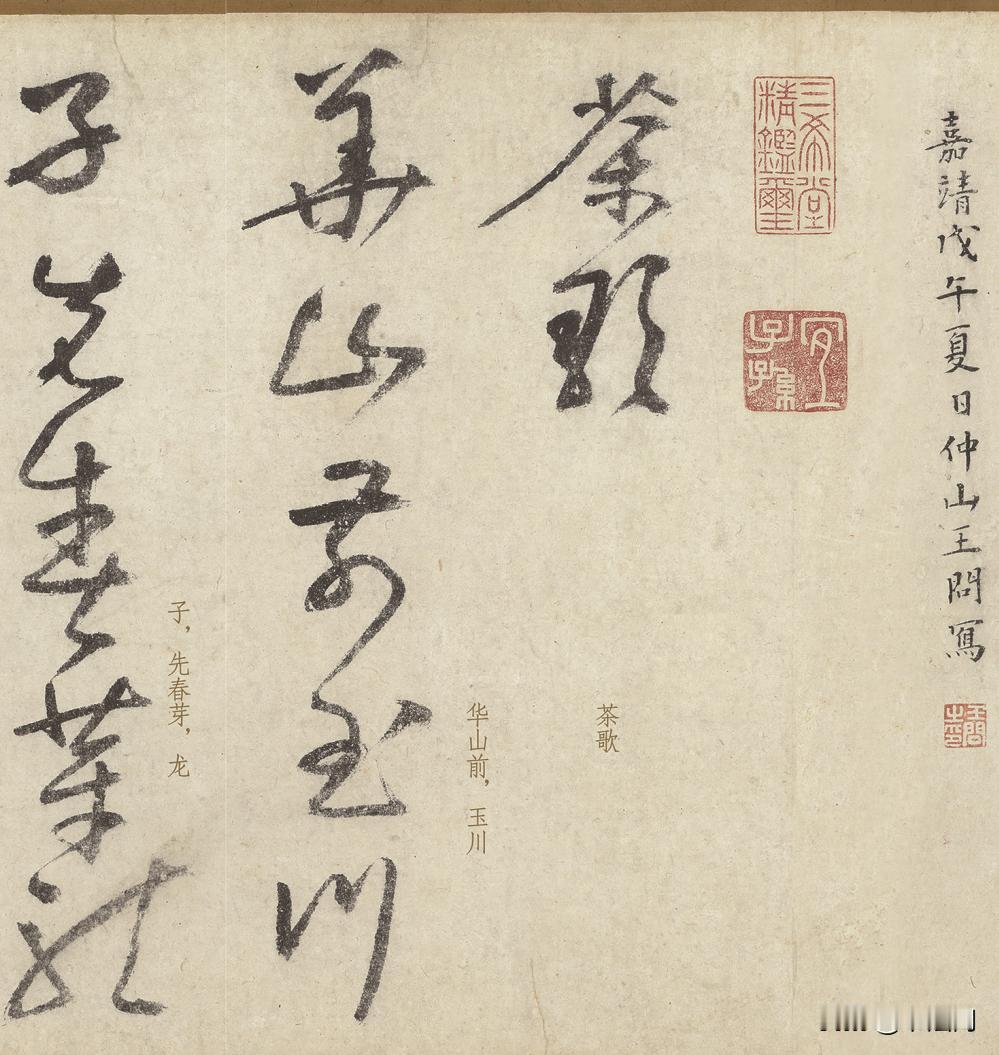 嘉靖戊午夏日仲山王問寫
王問之印
三希堂精鑑璽
宜子孫
茶歌
茶歌
華山前玉川
华山前，玉川
子先春芽龍
子，先春芽，龙